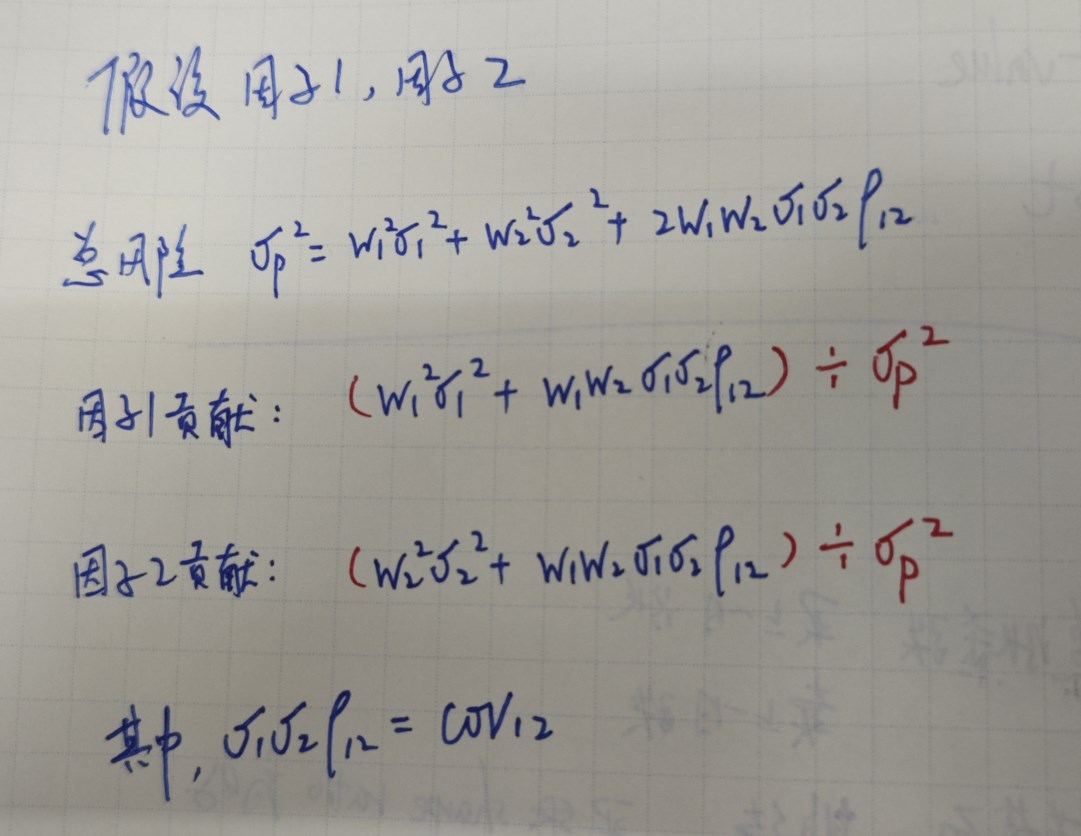 假设 因子1，因子2
总风险 σp² = w₁²σ₁² + w₂²σ₂² + 2w₁w₂σ₁σ₂ρ₁₂
因子1贡献： (w₁²σ₁² + w₁w₂σ₁σ₂ρ₁₂) ÷ σp²
因子2贡献： (w₂²σ₂² + w₁w₂σ₁σ₂ρ₁₂) ÷ σp²
其中, σ₁σ₂ρ₁₂ = cov₁₂